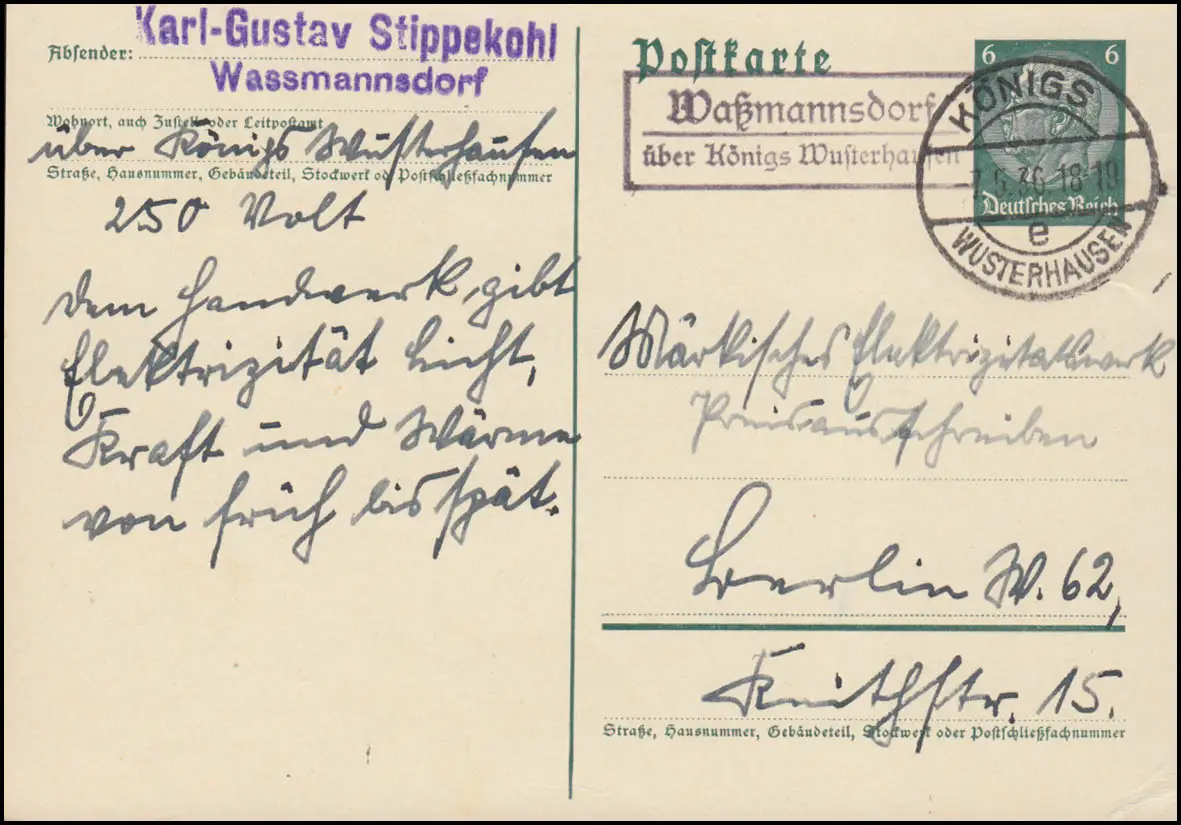 Karl-Gustav Stippekohl
Absender:
Wassmannsdorf
Wohnort, auch Zustell- oder Leitpostamt
über Königs Wusterhausen
Straße, Hausnummer, Gebäudeteil, Stockwerk od. Postschließfachnummer
250 Volt
Dem Handwerk gibt
Elektrizität Licht,
Kraft und Wärme
von früh bis spät.
Postkarte
Waßmannsdorf
über Königs Wusterhausen
6 6
Deutsches Reich
KÖNIGS
-7.5.36 18-19
e
WUSTERHAUSEN
Märkisches Elektrizitatswerk
Preisausschreiben
Berlin W. 62,
Keithstr. 15.
Straße, Hausnummer, Gebäudeteil, Stockwerk oder Postschließfachnummer